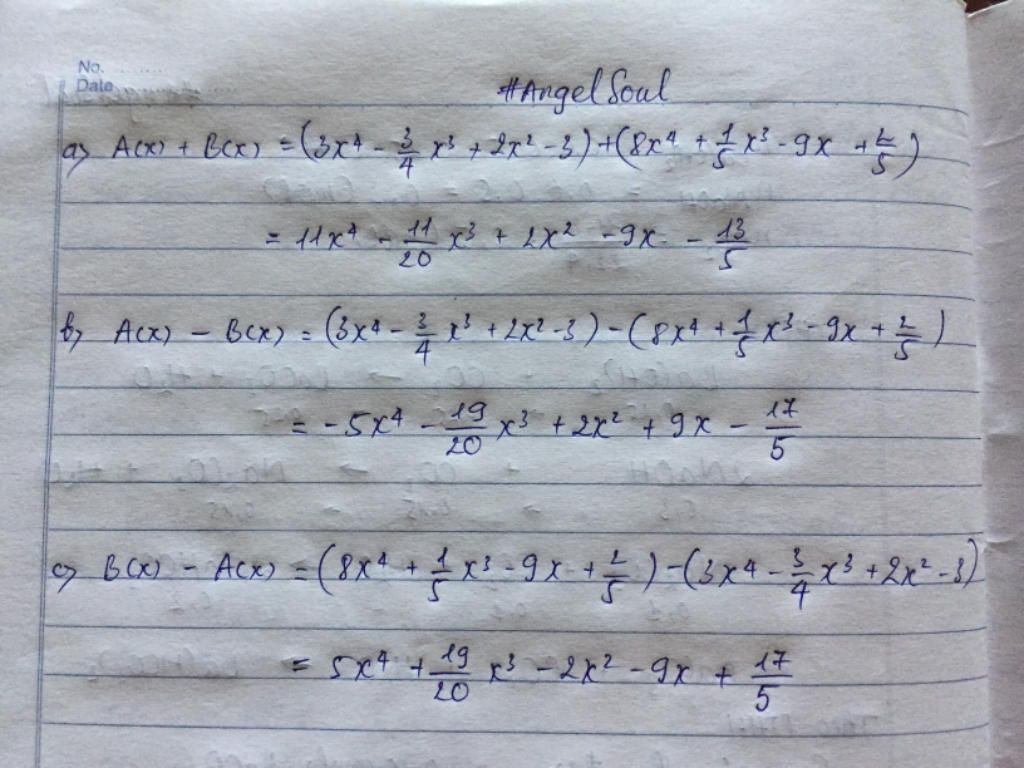 No. ........
Date ...............
#AngelSoul
a) A(x) + B(x) = (3x⁴ - 3/4 x³ + 2x² - 3) + (8x⁴ + 1/5 x³ - 9x + 2/5)
= 11x⁴ - 11/20 x³ + 2x² - 9x - 13/5
b) A(x) - B(x) = (3x⁴ - 3/4 x³ + 2x² - 3) - (8x⁴ + 1/5 x³ - 9x + 2/5)
= -5x⁴ - 19/20 x³ + 2x² + 9x - 17/5
c) B(x) - A(x) = (8x⁴ + 1/5 x³ - 9x + 2/5) - (3x⁴ - 3/4 x³ + 2x² - 3)
= 5x⁴ + 19/20 x³ - 2x² - 9x + 17/5